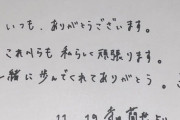 いつも、ありがとうございます。
これからも私らしく頑張ります。
一緒に歩んでくれてありがとう。
11.19
より